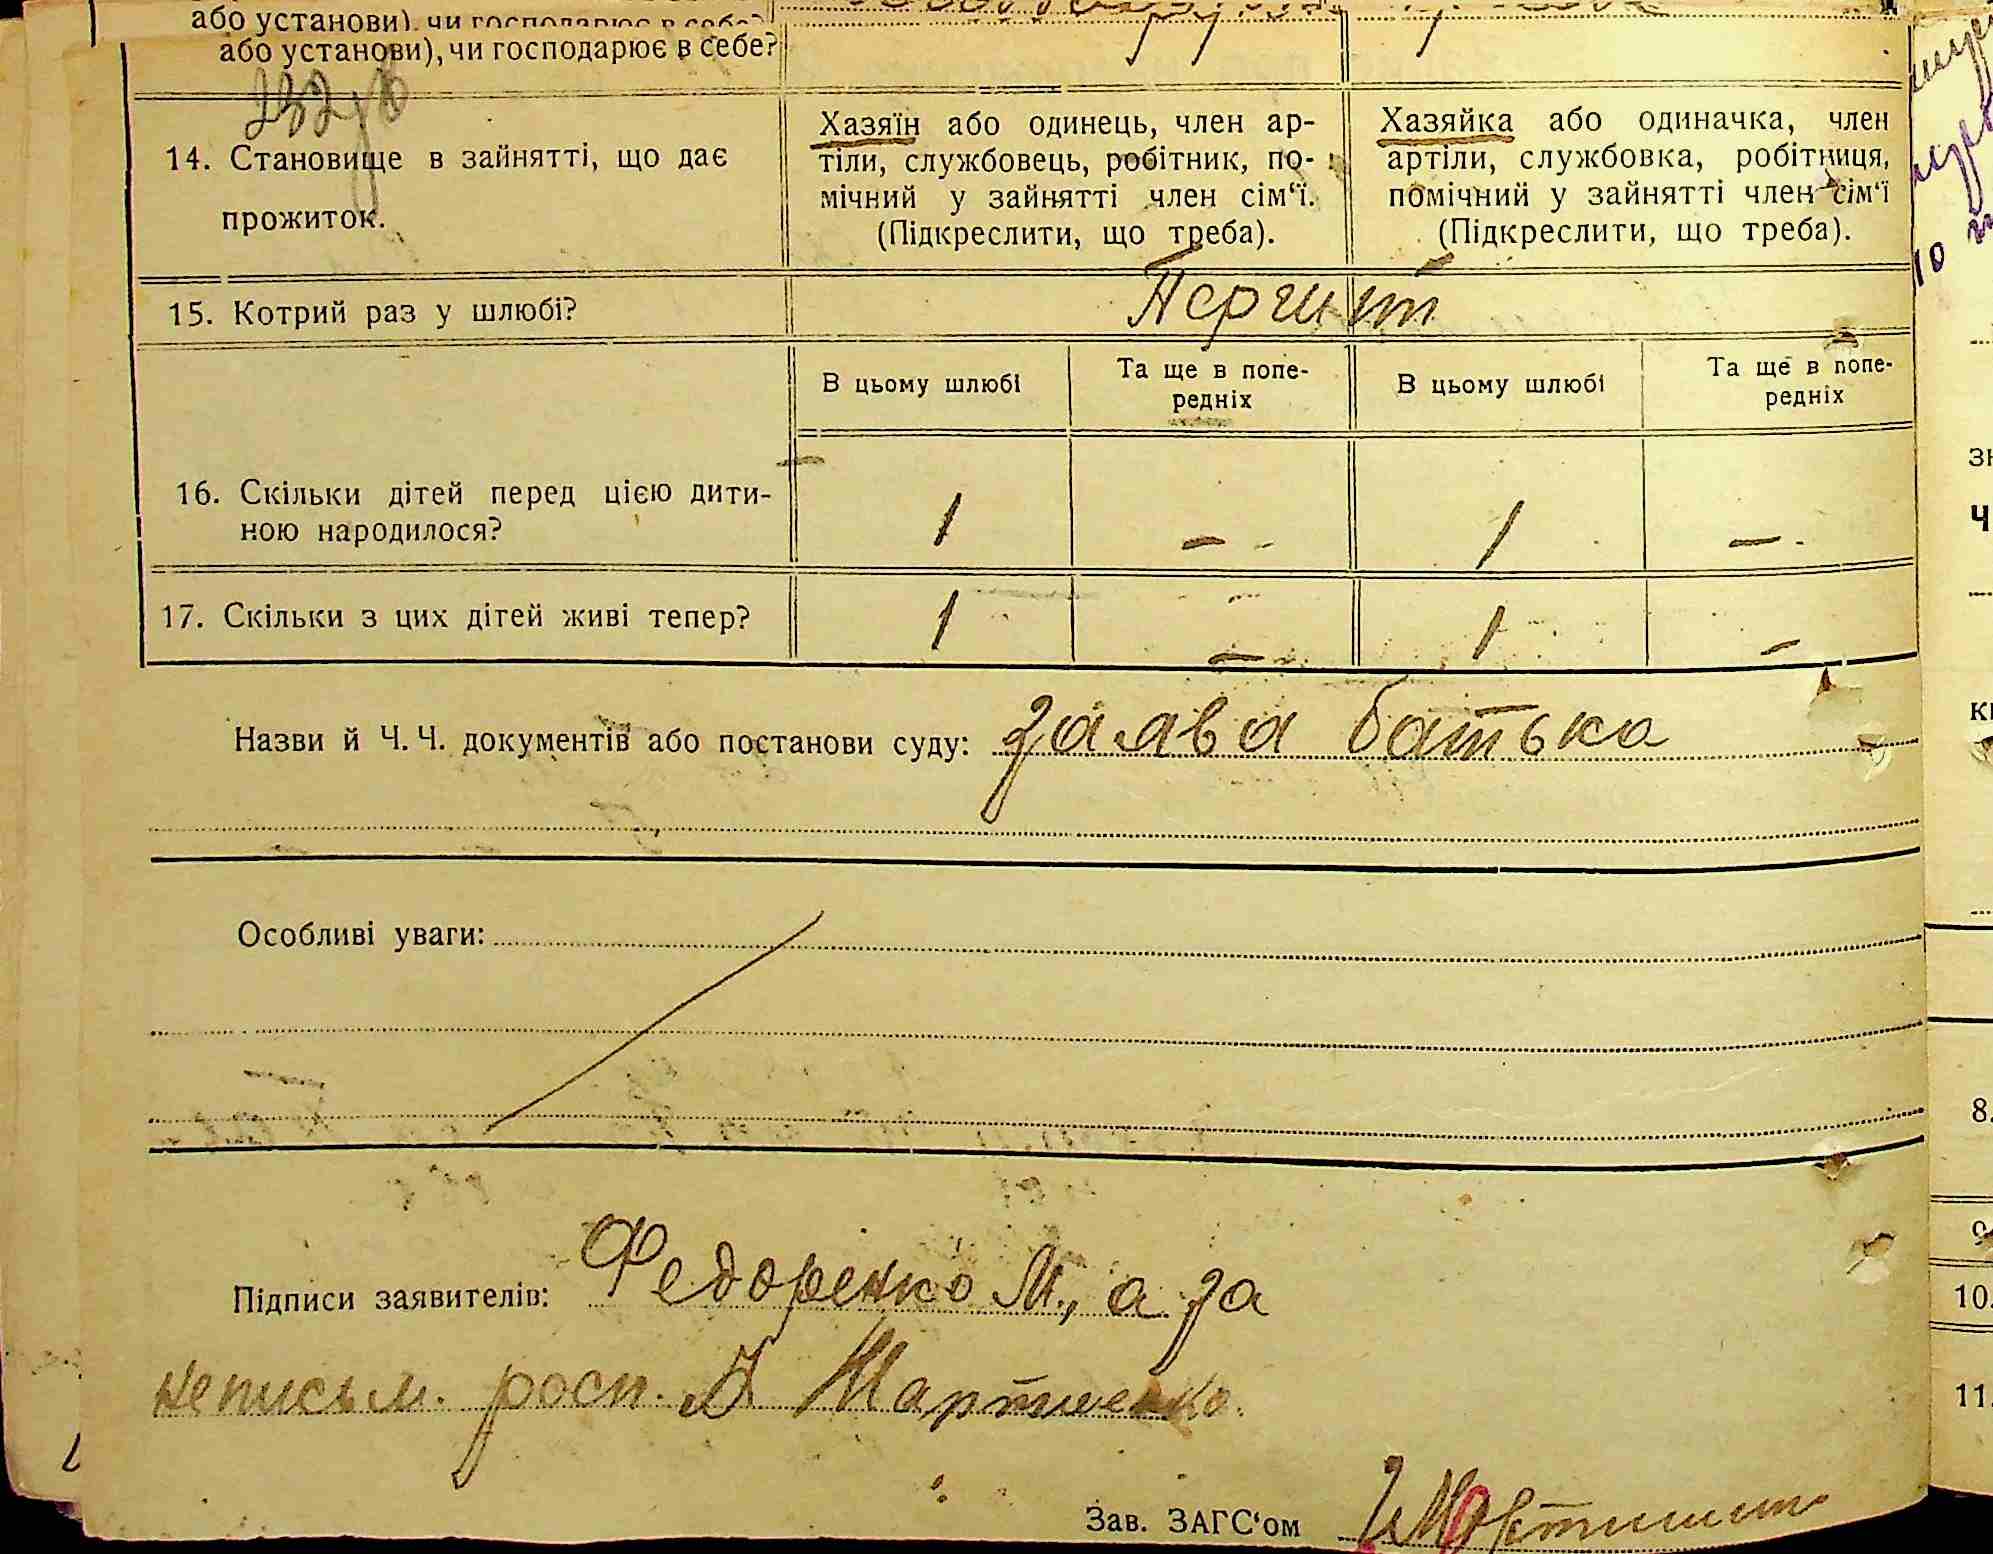 або установи), чи господарює в себе?
або установи), чи господарює в себе?
14. Становище в зайнятті, що дає прожиток.
Хазяїн або одинець, член ар-
тіли, службовець, робітник, по-
мічний у зайнятті член сім‘ї.
(Підкреслити, що треба).
Хазяйка або одиначка, член
артіли, службовка, робітниця,
помічний у зайнятті член сім‘ї
(Підкреслити, що треба).
15. Котрий раз у шлюбі?
В цьому шлюбі
Та ще в попе-
редніх
В цьому шлюбі
Та ще в попе-
редніх
16. Скільки дітей перед цією дити-
ною народилося?
1 – 1 –
17. Скільки з цих дітей живі тепер?
1 – 1 –
Назви й Ч. Ч. документів або постанови суду: заява батька
Особливі уваги:
Підписи заявителів: Федоренко М., а за
неписьм. росп.
Зав. ЗАГС‘ом
8.
9
10.
11.